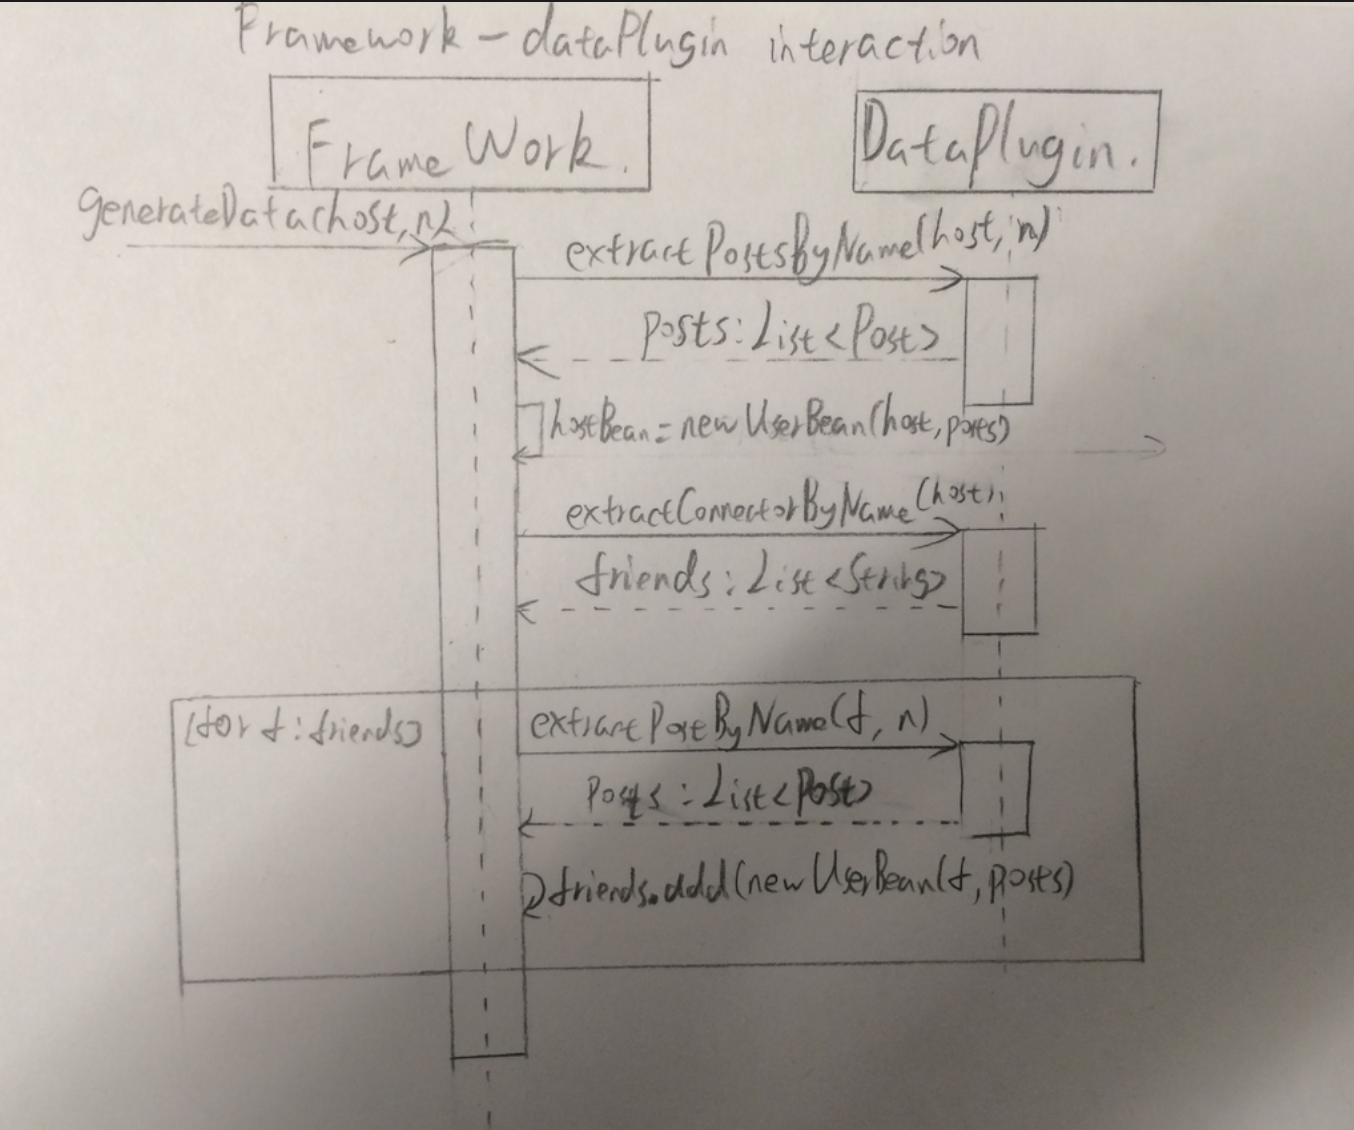 Framework - dataPlugin interaction
FrameWork.
DataPlugin.
generateData(host, n)
extractPostsByName(host, n)
posts: List<Post>
hostBean = new UserBean(host, posts)
extractConnectorByName(host)
friends: List<String>
[for f: friends]
extractPostByName(f, n)
Posts: List<Post>
friends.add(new UserBean(f, posts)